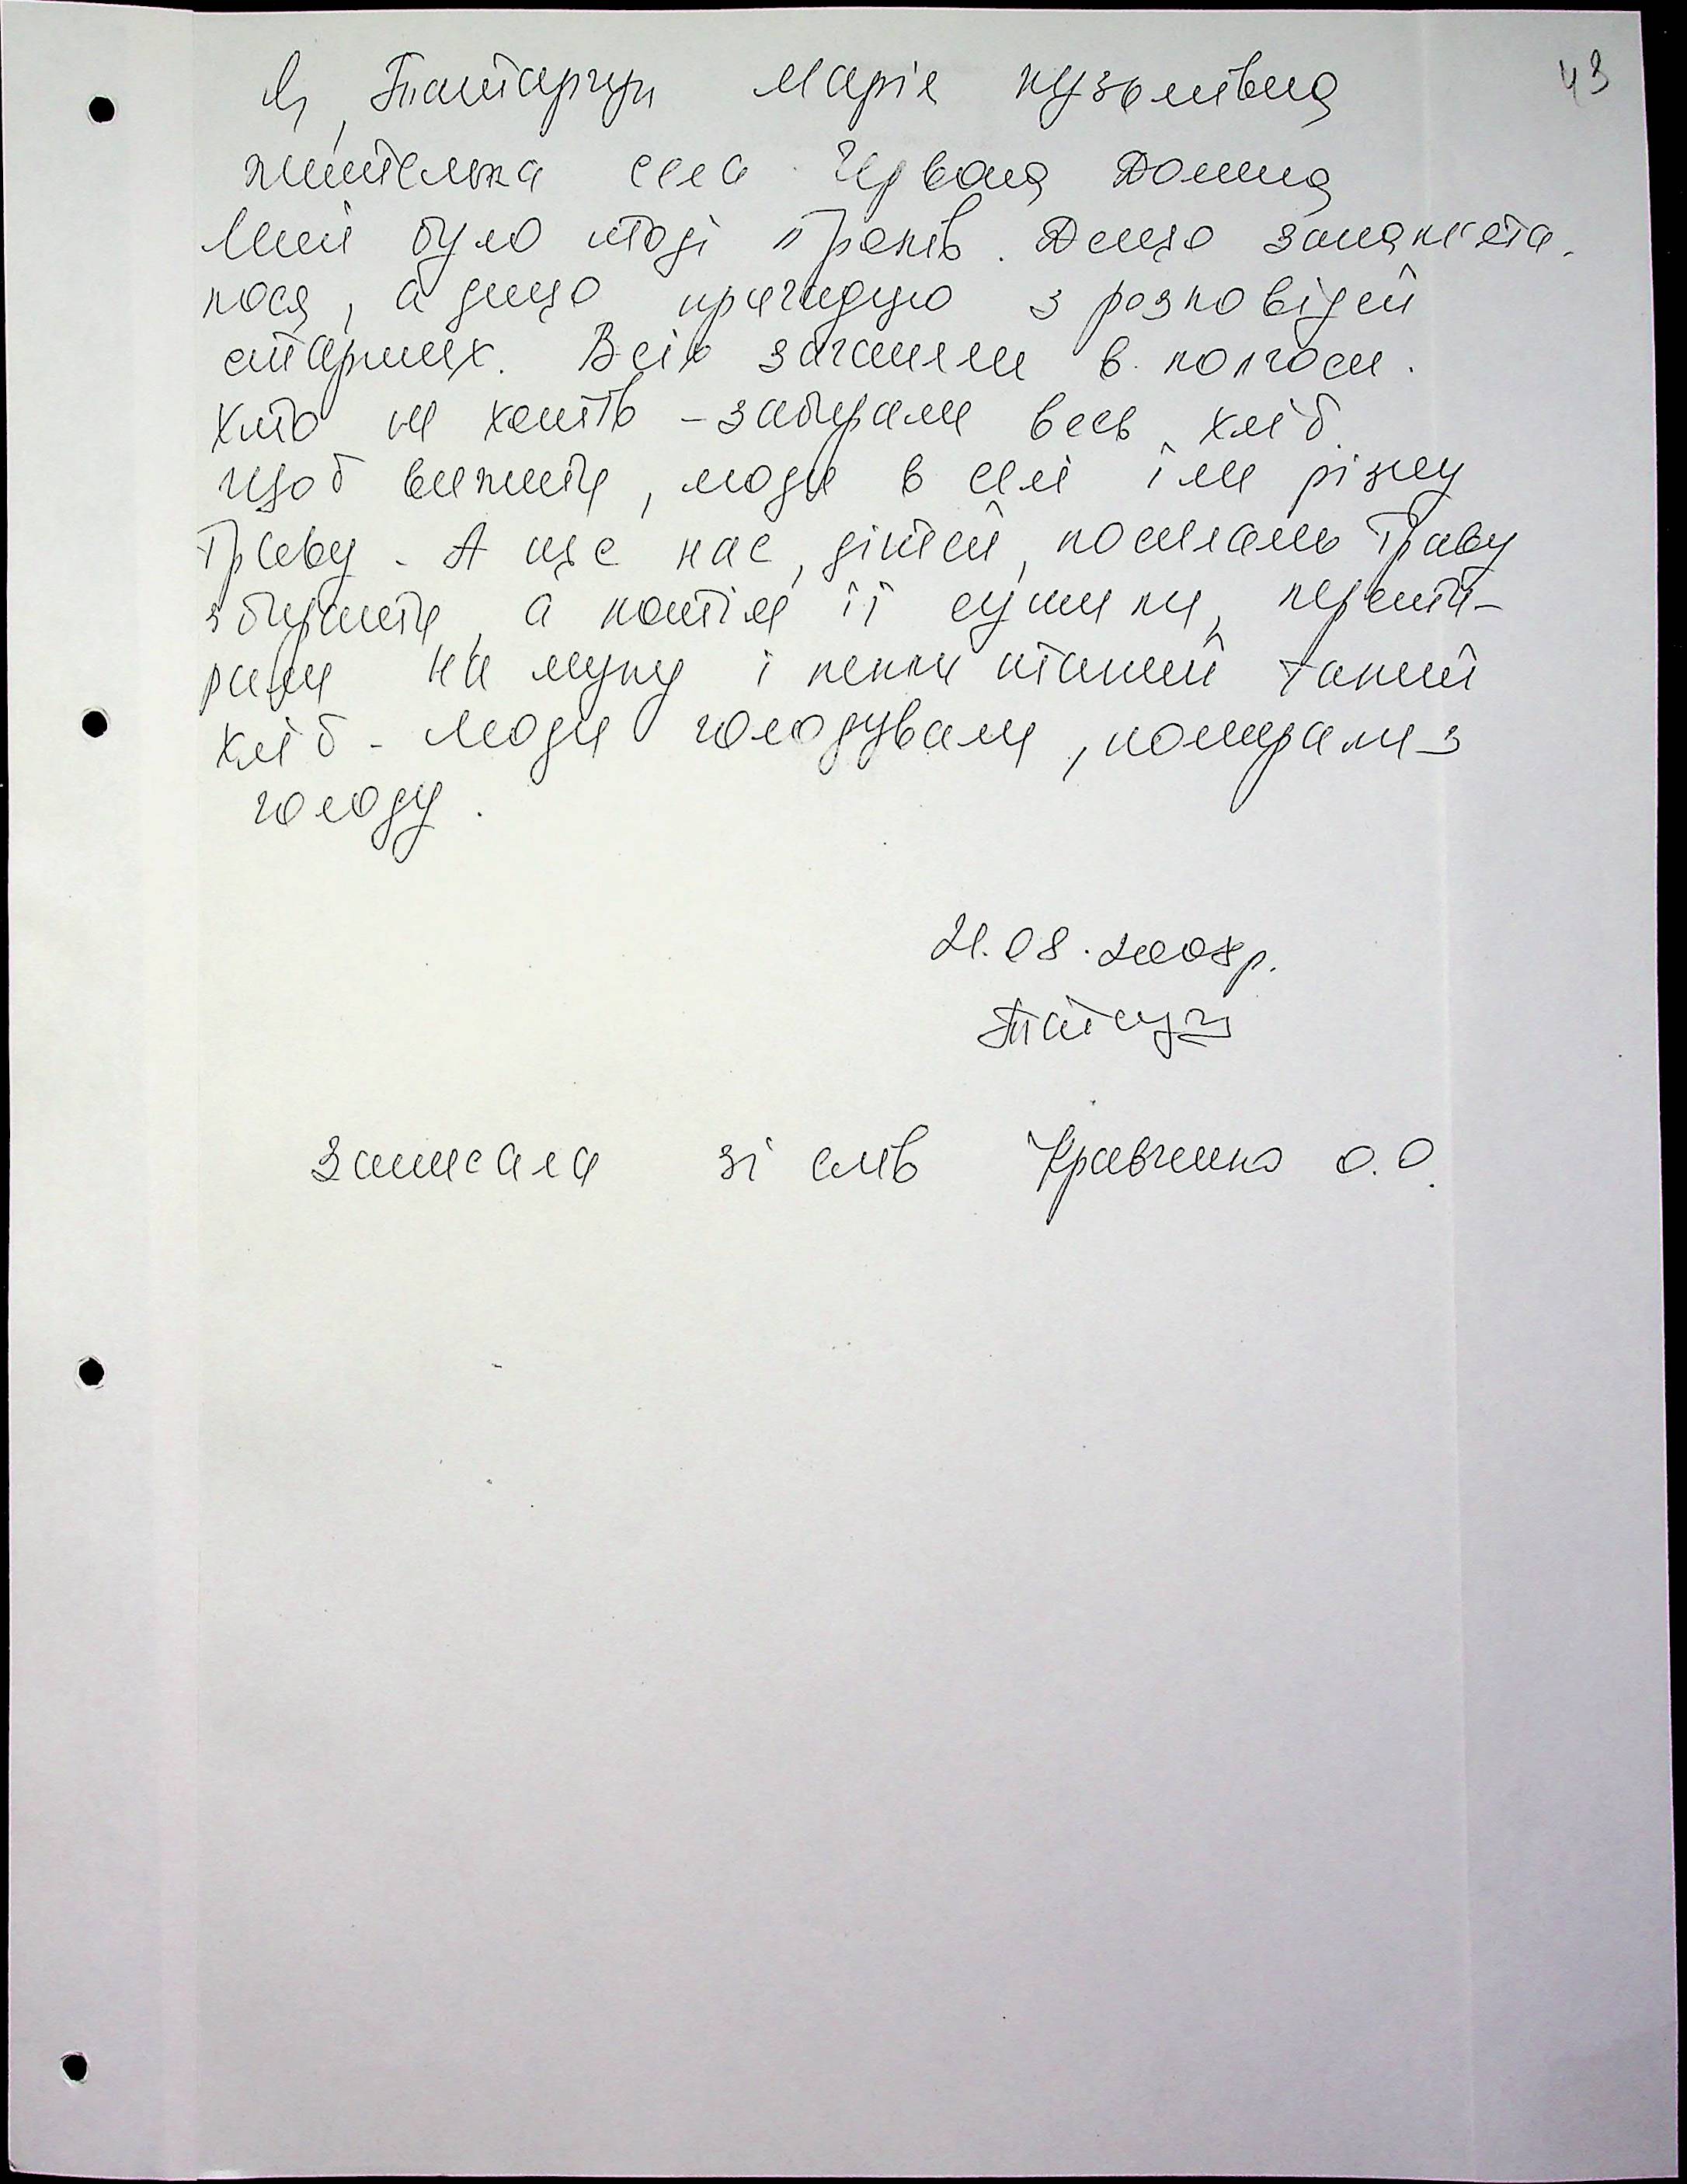 43
Я, Татарчук Марія Кузьмівна
жителька села Червона Долина
Мені було тоді років. Дещо запам'ята-
лося, а дещо пригадую з розповідей
старших. Всіх заганяли в колгоси.
Хто не хотів - забирали весь хліб.
Щоб вижити, люди в селі їли різну
траву. А ще нас, дітей, посилали траву
збирати, а потім її сушили, перети-
рали на муку і пекли такий
хліб. Люди голодували, помирали з
голоду.
21.08.2008р.
Записала зі слів Кравченко О.О.